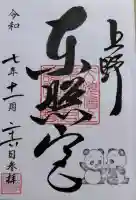 上野
東照宮
令和
七年十一月
二六日参拝